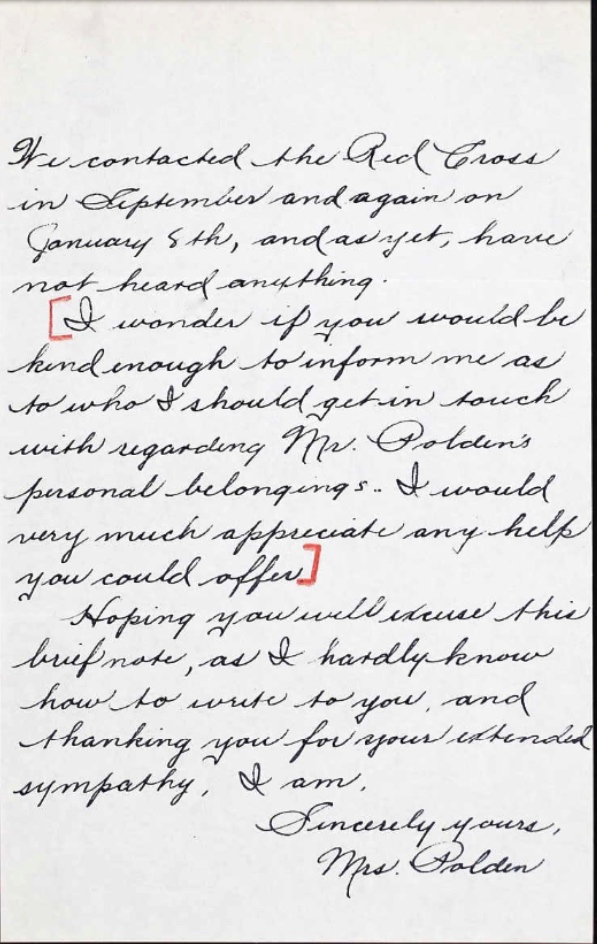 We contacted the Red Cross
in September and again on
January 8th, and as yet, have
not heard anything.
[I wonder if you would be
kind enough to inform me as
to who I should get in touch
with regarding Mr. Polden's
personal belongings. I would
very much appreciate any help
you could offer]
Hoping you will excuse this
brief note, as I hardly know
how to write to you, and
thanking you for your extended
sympathy, I am,
Sincerely yours,
Mrs. Polden